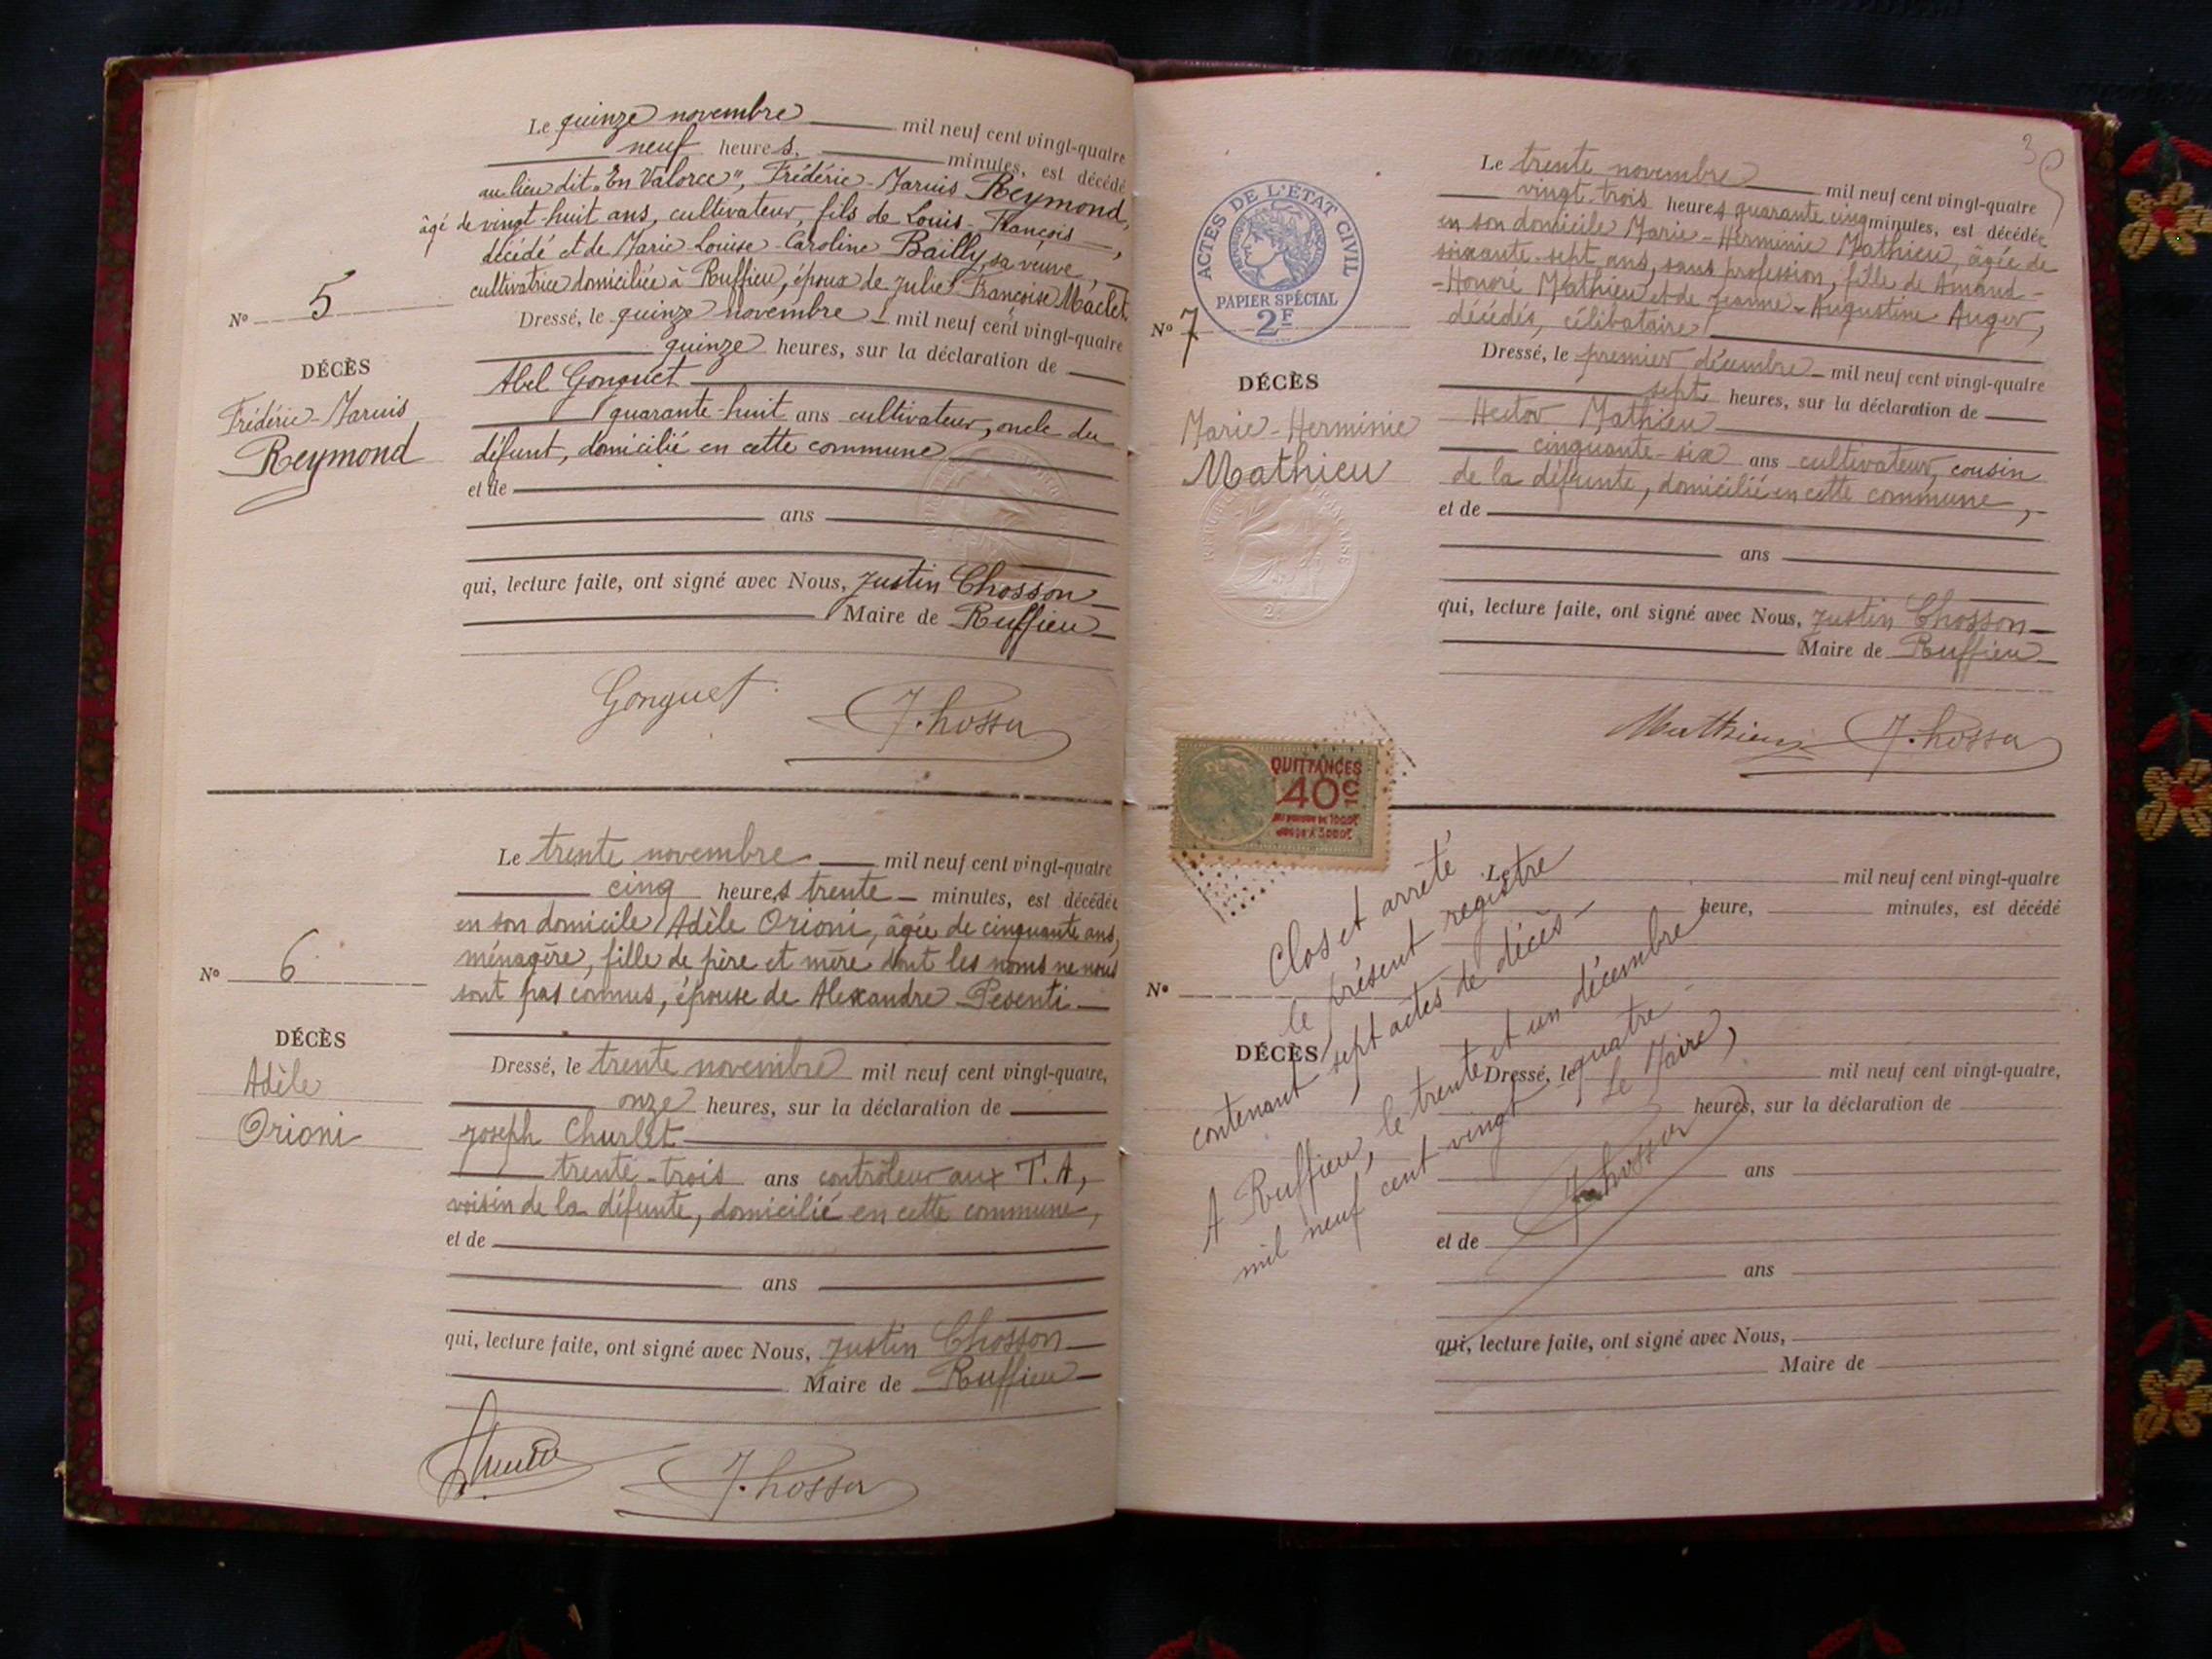 Le quinze novembre mil neuf cent vingt-quatre
neuf heures, minutes, est décédé
au lieu dit "En Valorce", Frédéric-Marius Reymond,
âgé de vingt-huit ans, cultivateur, fils de Louis-François,
décédé et de Marie-Louise-Caroline Bailly, sa veuve,
cultivatrice domiciliée à Ruffieu, époux de Julie Françoise Maclet.
Nº 5
Dressé, le quinze novembre mil neuf cent vingt-quatre
quinze heures, sur la déclaration de
DÉCÈS
Frédéric-Marius
Reymond
Abel Gonguet
quarante-huit ans cultivateur, oncle du
défunt, domicilié en cette commune
et de
ans
qui, lecture faite, ont signé avec Nous, Justin Chosson
Maire de Ruffieu
Gonguet J. Chosson
Le trente novembre mil neuf cent vingt-quatre
cinq heures trente minutes, est décédée
en son domicile Adèle Orioni, âgée de cinquante ans,
ménagère, fille de père et mère dont les noms ne nous
sont pas connus, épouse de Alexandre Pesenti
Nº 6
DÉCÈS
Adèle
Orioni
Dressé, le trente novembre mil neuf cent vingt-quatre,
onze heures, sur la déclaration de
Joseph Churlet
trente-trois ans contrôleur aux T.A,
voisin de la défunte, domicilié en cette commune,
et de
ans
qui, lecture faite, ont signé avec Nous, Justin Chosson
Maire de Ruffieu
J. Chosson
3
ACTES DE L'ÉTAT CIVIL
PAPIER SPÉCIAL
2F
Le trente novembre mil neuf cent vingt-quatre
vingt-trois heures quarante cinq minutes, est décédée
en son domicile Marie-Herminie Mathieu, âgée de
soixante-sept ans, sans profession, fille de Amand-
-Honoré Mathieu et de Jeanne-Augustine Auger,
décédés, célibataire
Nº 7
DÉCÈS
Marie-Herminie
Mathieu
Dressé, le premier décembre mil neuf cent vingt-quatre
sept heures, sur la déclaration de
Hector Mathieu
cinquante-six ans cultivateur, cousin
de la défunte, domicilié en cette commune,
et de
ans
qui, lecture faite, ont signé avec Nous, Justin Chosson
Maire de Ruffieu
Mathieu J. Chosson
QUITTANCES
40c
Clos et arrêté
le présent registre
contenant sept actes de décès
A Ruffieu, le trente et un décembre
mil neuf cent vingt quatre
Le Maire,
J. Chosson
Le mil neuf cent vingt-quatre
heure, minutes, est décédé
Nº
DÉCÈS
Dressé, le mil neuf cent vingt-quatre,
heures, sur la déclaration de
ans
et de
ans
qui, lecture faite, ont signé avec Nous,
Maire de